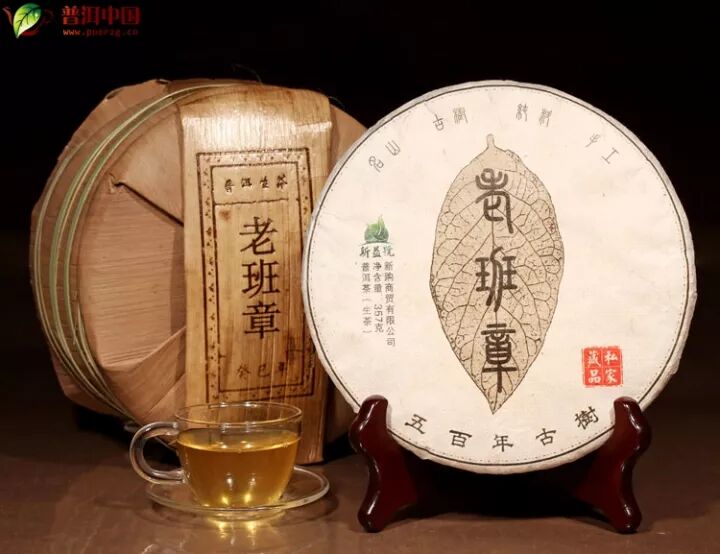 普洱中国
www.puerzg.cn
普洱生茶
老班章
癸巳年
名山 古树 纯料 手工
老班章
新益號
新购商贸有限公司
净含量：357克
普洱茶（生茶）
私家
藏品
五百年古樹